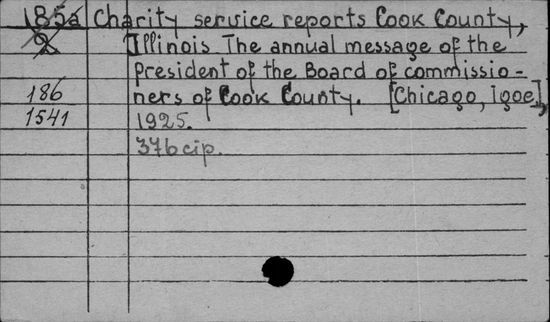 185a Charity service reports Cook County,
2 Illinois The annual message of the
president of the Board of commissio-
186 ners of Cook County. [Chicago, igoe],
1541 1925.
376 cip.